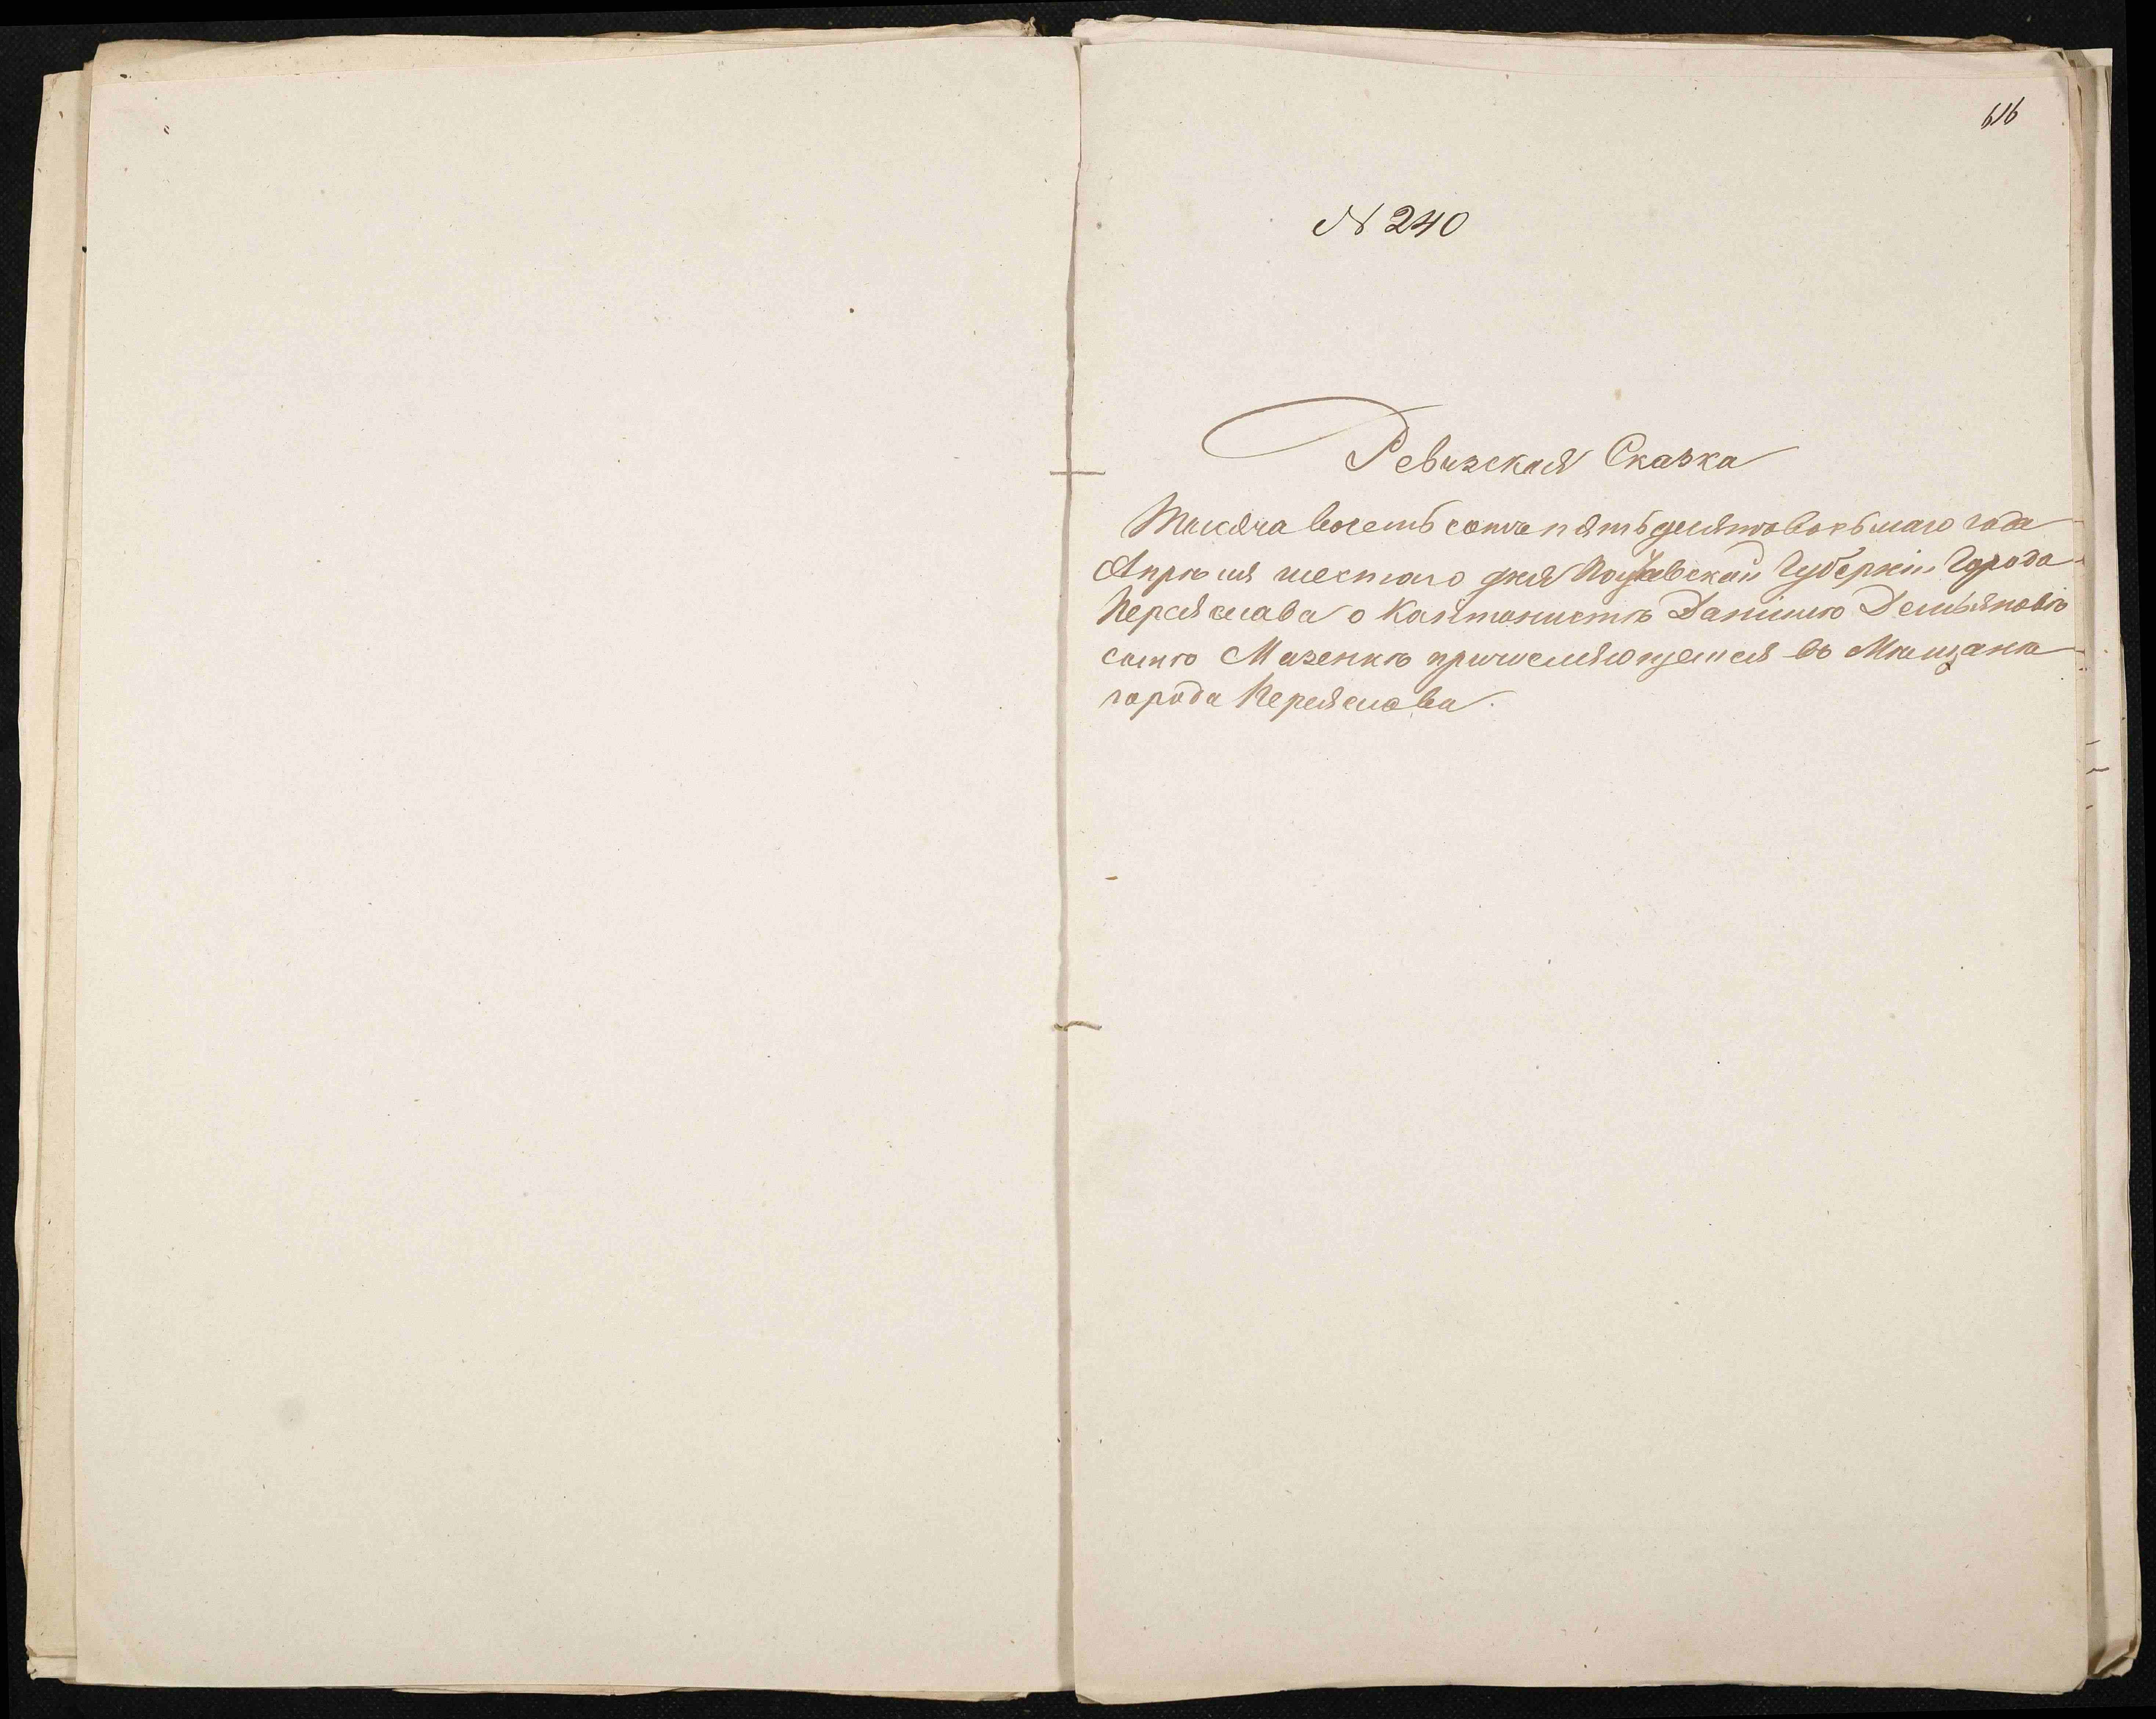 616
N 240
Ревизская Сказка
Тысяча восемь сотъ пятьдесятъ восьмаго года
Апрѣля шестаго дня Полтавской Губерніи Города
Переяслава о Кантонистѣ Даніилѣ Демьяновѣ
сынѣ Мазенкѣ причисляющемся въ Мѣщане
города Переяслава.